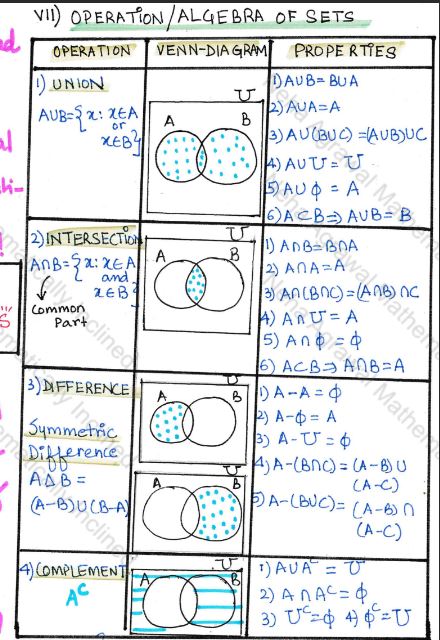 VII) OPERATION/ALGEBRA OF SETS
OPERATION
VENN-DIAGRAM
PROPERTIES
1) UNION
A∪B={x: x∈A
or
x∈B}
U
A
B
1) A∪B=B∪A
2) A∪A=A
3) A∪(B∪C)=(A∪B)∪C
4) A∪U=U
5) A∪ϕ=A
6) A⊂B⇒A∪B=B
2) INTERSECTION
A∩B={x: x∈A
and
x∈B}
Common
Part
U
A
B
1) A∩B=B∩A
2) A∩A=A
3) A∩(B∩C)=(A∩B)∩C
4) A∩U=A
5) A∩ϕ=ϕ
6) A⊂B⇒A∩B=A
3) DIFFERENCE
Symmetric
Difference
A∆B=
(A-B)∪(B-A)
U
A
B
U
A
B
1) A-A=ϕ
2) A-ϕ=A
3) A-U=ϕ
4) A-(B∩C)=(A-B)∪
(A-C)
5) A-(B∪C)=(A-B)∩
(A-C)
4) COMPLEMENT
Aᶜ
U
A
B
1) A∪Aᶜ=U
2) A∩Aᶜ=ϕ
3) Uᶜ=ϕ 4) ϕᶜ=U
Neha Agrawal Mathematically Inclined